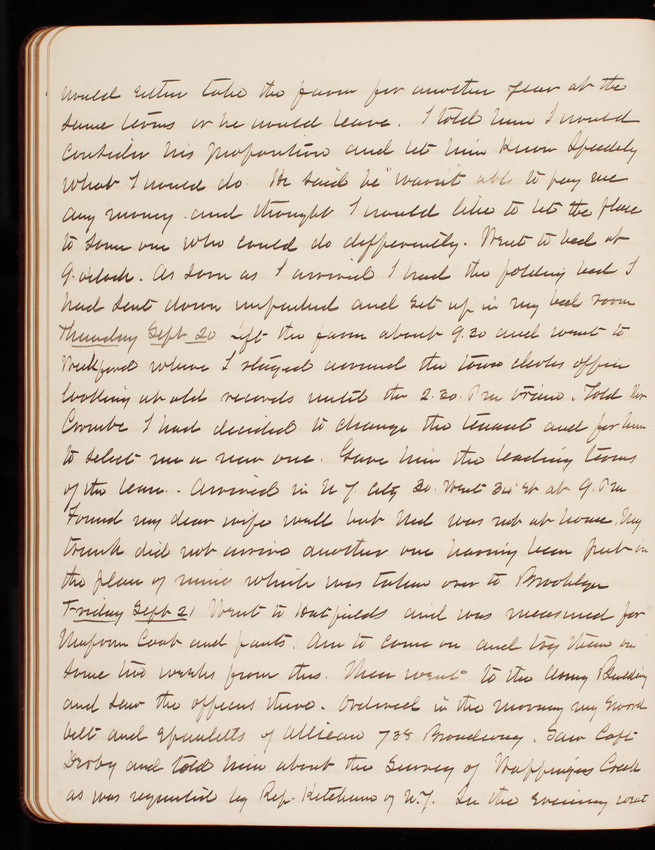 would either take the farm for another year at the
same terms or he would leave. I told him I would
consider his proposition and let him know speedely
what I would do. He said he "wasn't" able to pay me
any money and thought I would like to let the place
to some one who could do differently. Went to bed at
9. oclock. As soon as I arrived I had the folding bed I
had sent down unpacked and set up in my bed room
Thursday Sept 20 Left the farm about 9.30 and went to
Wickford where I stayed around the town clerks office
looking at old records until the 2.30. P m train. Told Mr
I had decided to change the tenant and for him
to select me a new one. Gave him the leading terms
of the lease. Arrived in N Y. City 30. West 34 St at 9. P m
Found my dear wife well but Ned was not at home. My
trunk did not arrive another one having been put in
the place of mine which was taken over to Brooklyn
Friday Sept 21 Went to Hatfields and was measured for
Uniform Coat and pants. Am to come on and try them on
some two weeks from this. Then went to the Army Building
and saw the officers there. Ordered in the morning my Sword
belt and Epauletts of 738 Broadway. Saw Capt
Derby and told him about the Survey of Wappingers Creek
as was requested by Rep. Ketcham of N.Y. In the evening went